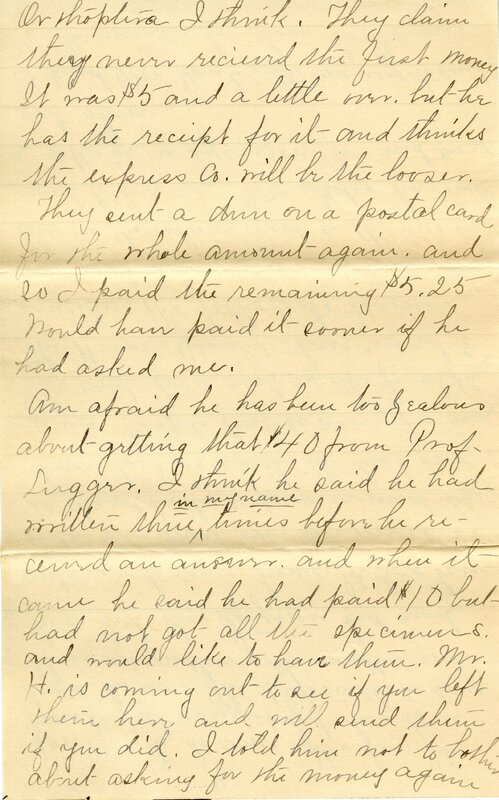 Orthoptera I think. They claim
they never recieved the first money
It was $5 and a little over. but he
has the receipt for it and thinks
the express Co. will be the looser.
They sent a dun on a postal card
for the whole amount again. and
so I paid the remaining $5.25
Would have paid it sooner if he
had asked me.
Am afraid he has been too zealous
about getting that $40 from Prof.
Lugger. I think he said he had
in my name
written three ^ times before he re-
ceived an answer. and when it
came he said he had paid $10 but
had not got all the specimens.
and would like to have them. Mr.
H. is coming out to see if you left
them here and will send them
if you did. I told him not to bother
about asking for the money again